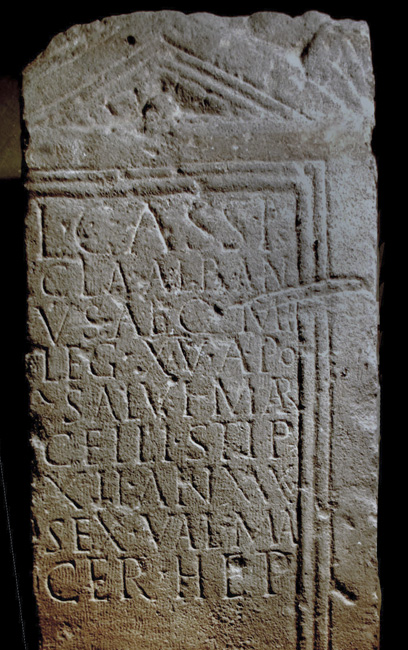 L·CASSI
CLA·ALBAN
VS·AEQ·MIL
LEG·XV·APO
SALVI·MAR
CELLI·STIP
XII·ANN
SEX·VAL·MA
CER·HEP